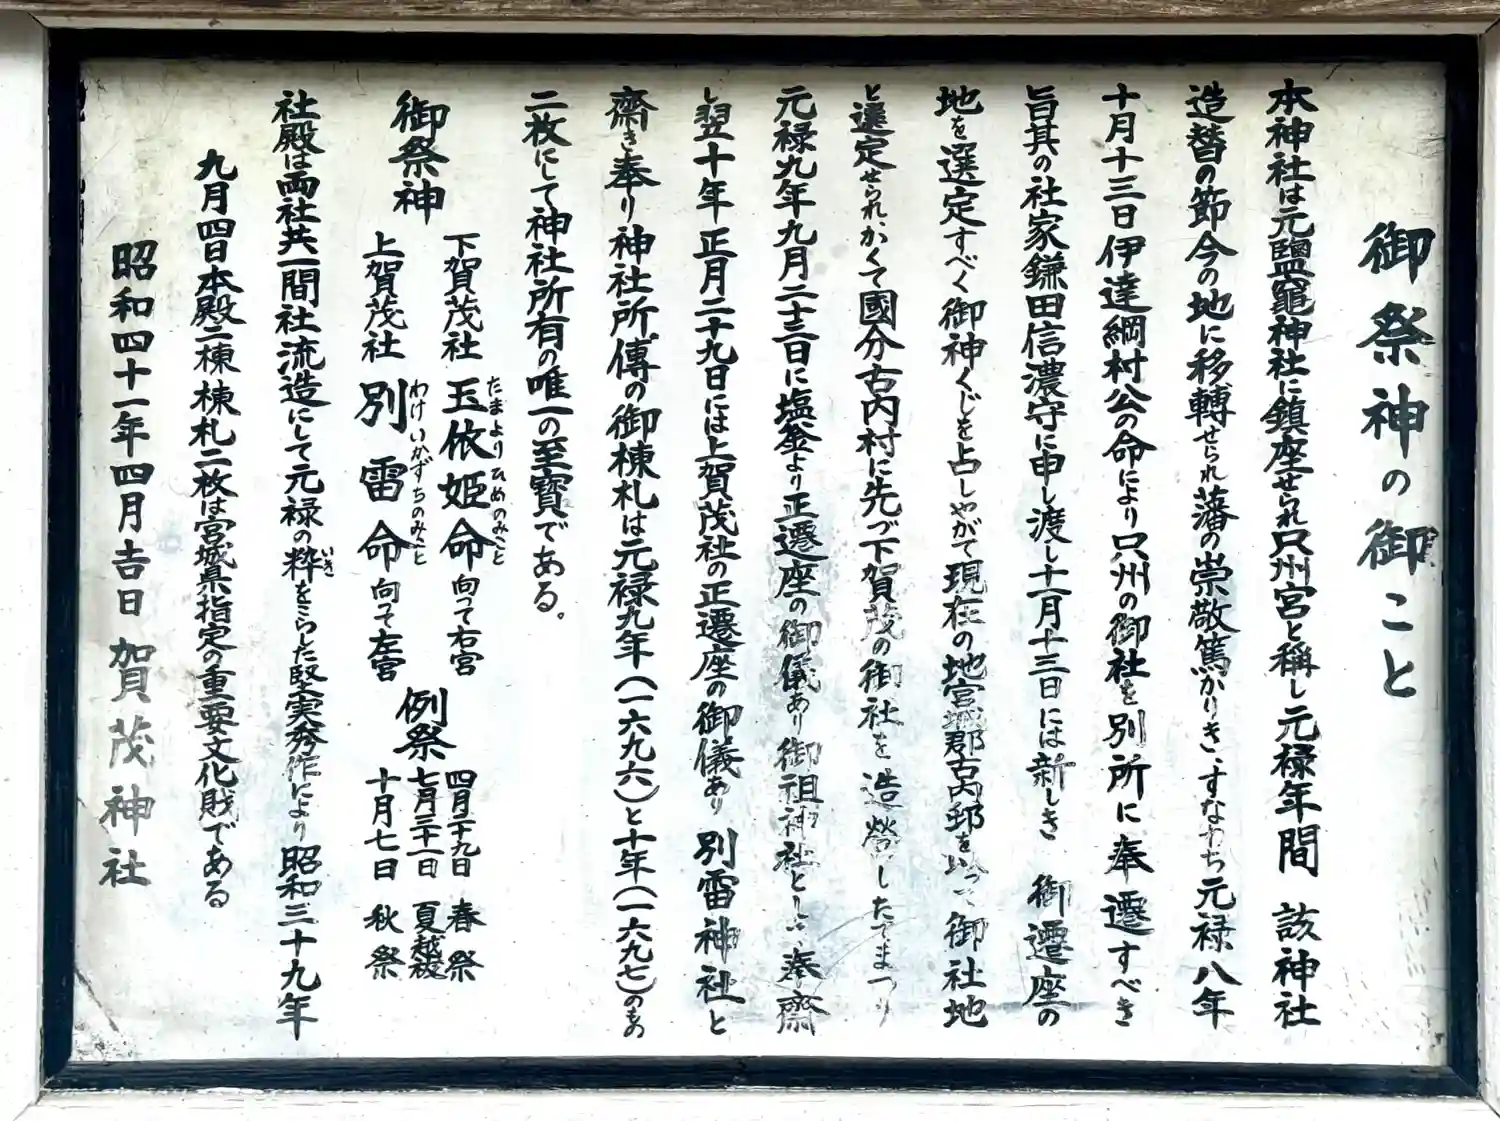 御祭神の御こと
本神社は元鹽竈神社に鎮座せられ只州宮と稱し元禄年間 該神社
造替の節今の地に移轉せられ藩の崇敬篤かりき、すなわち元禄八年
十月十三日伊達綱村公の命により只州の御社を別所に奉遷すべき
旨其の社家鎌田信濃守に申し渡し十一月十三日には新しき 御遷座の
地を選定すべく御神くじを占しやがて現在の地宮城郡古内邨を以って御社地
と選定せられ、かくて國分古内村に先づ下賀茂の御社を造營したてまつり
元禄九年九月二十三日に塩釜より正遷座の御儀あり御祖神社として奉齋
し翌十年正月二十九日には上賀茂社の正遷座の御儀あり 別雷神社と
齋き奉り神社所傳の御棟札は元禄九年(一六九六)と十年(一六九七)のもの
二枚にして神社所有の唯一の至寶である。
御祭神
下賀茂社 玉依姫命 向って右宮
たまよりひめのみこと
上賀茂社 別雷命 向って左宮
わけいかずちのみこと
例祭
四月二十九日 春祭
七月三十一日 夏越祓
十月七日 秋祭
社殿は両社共一間社流造にして元禄の粋をこらした堅実秀作により昭和三十九年
いき
九月四日本殿二棟棟札二枚は宮城県指定の重要文化財である
昭和四十一年四月吉日 賀茂神社